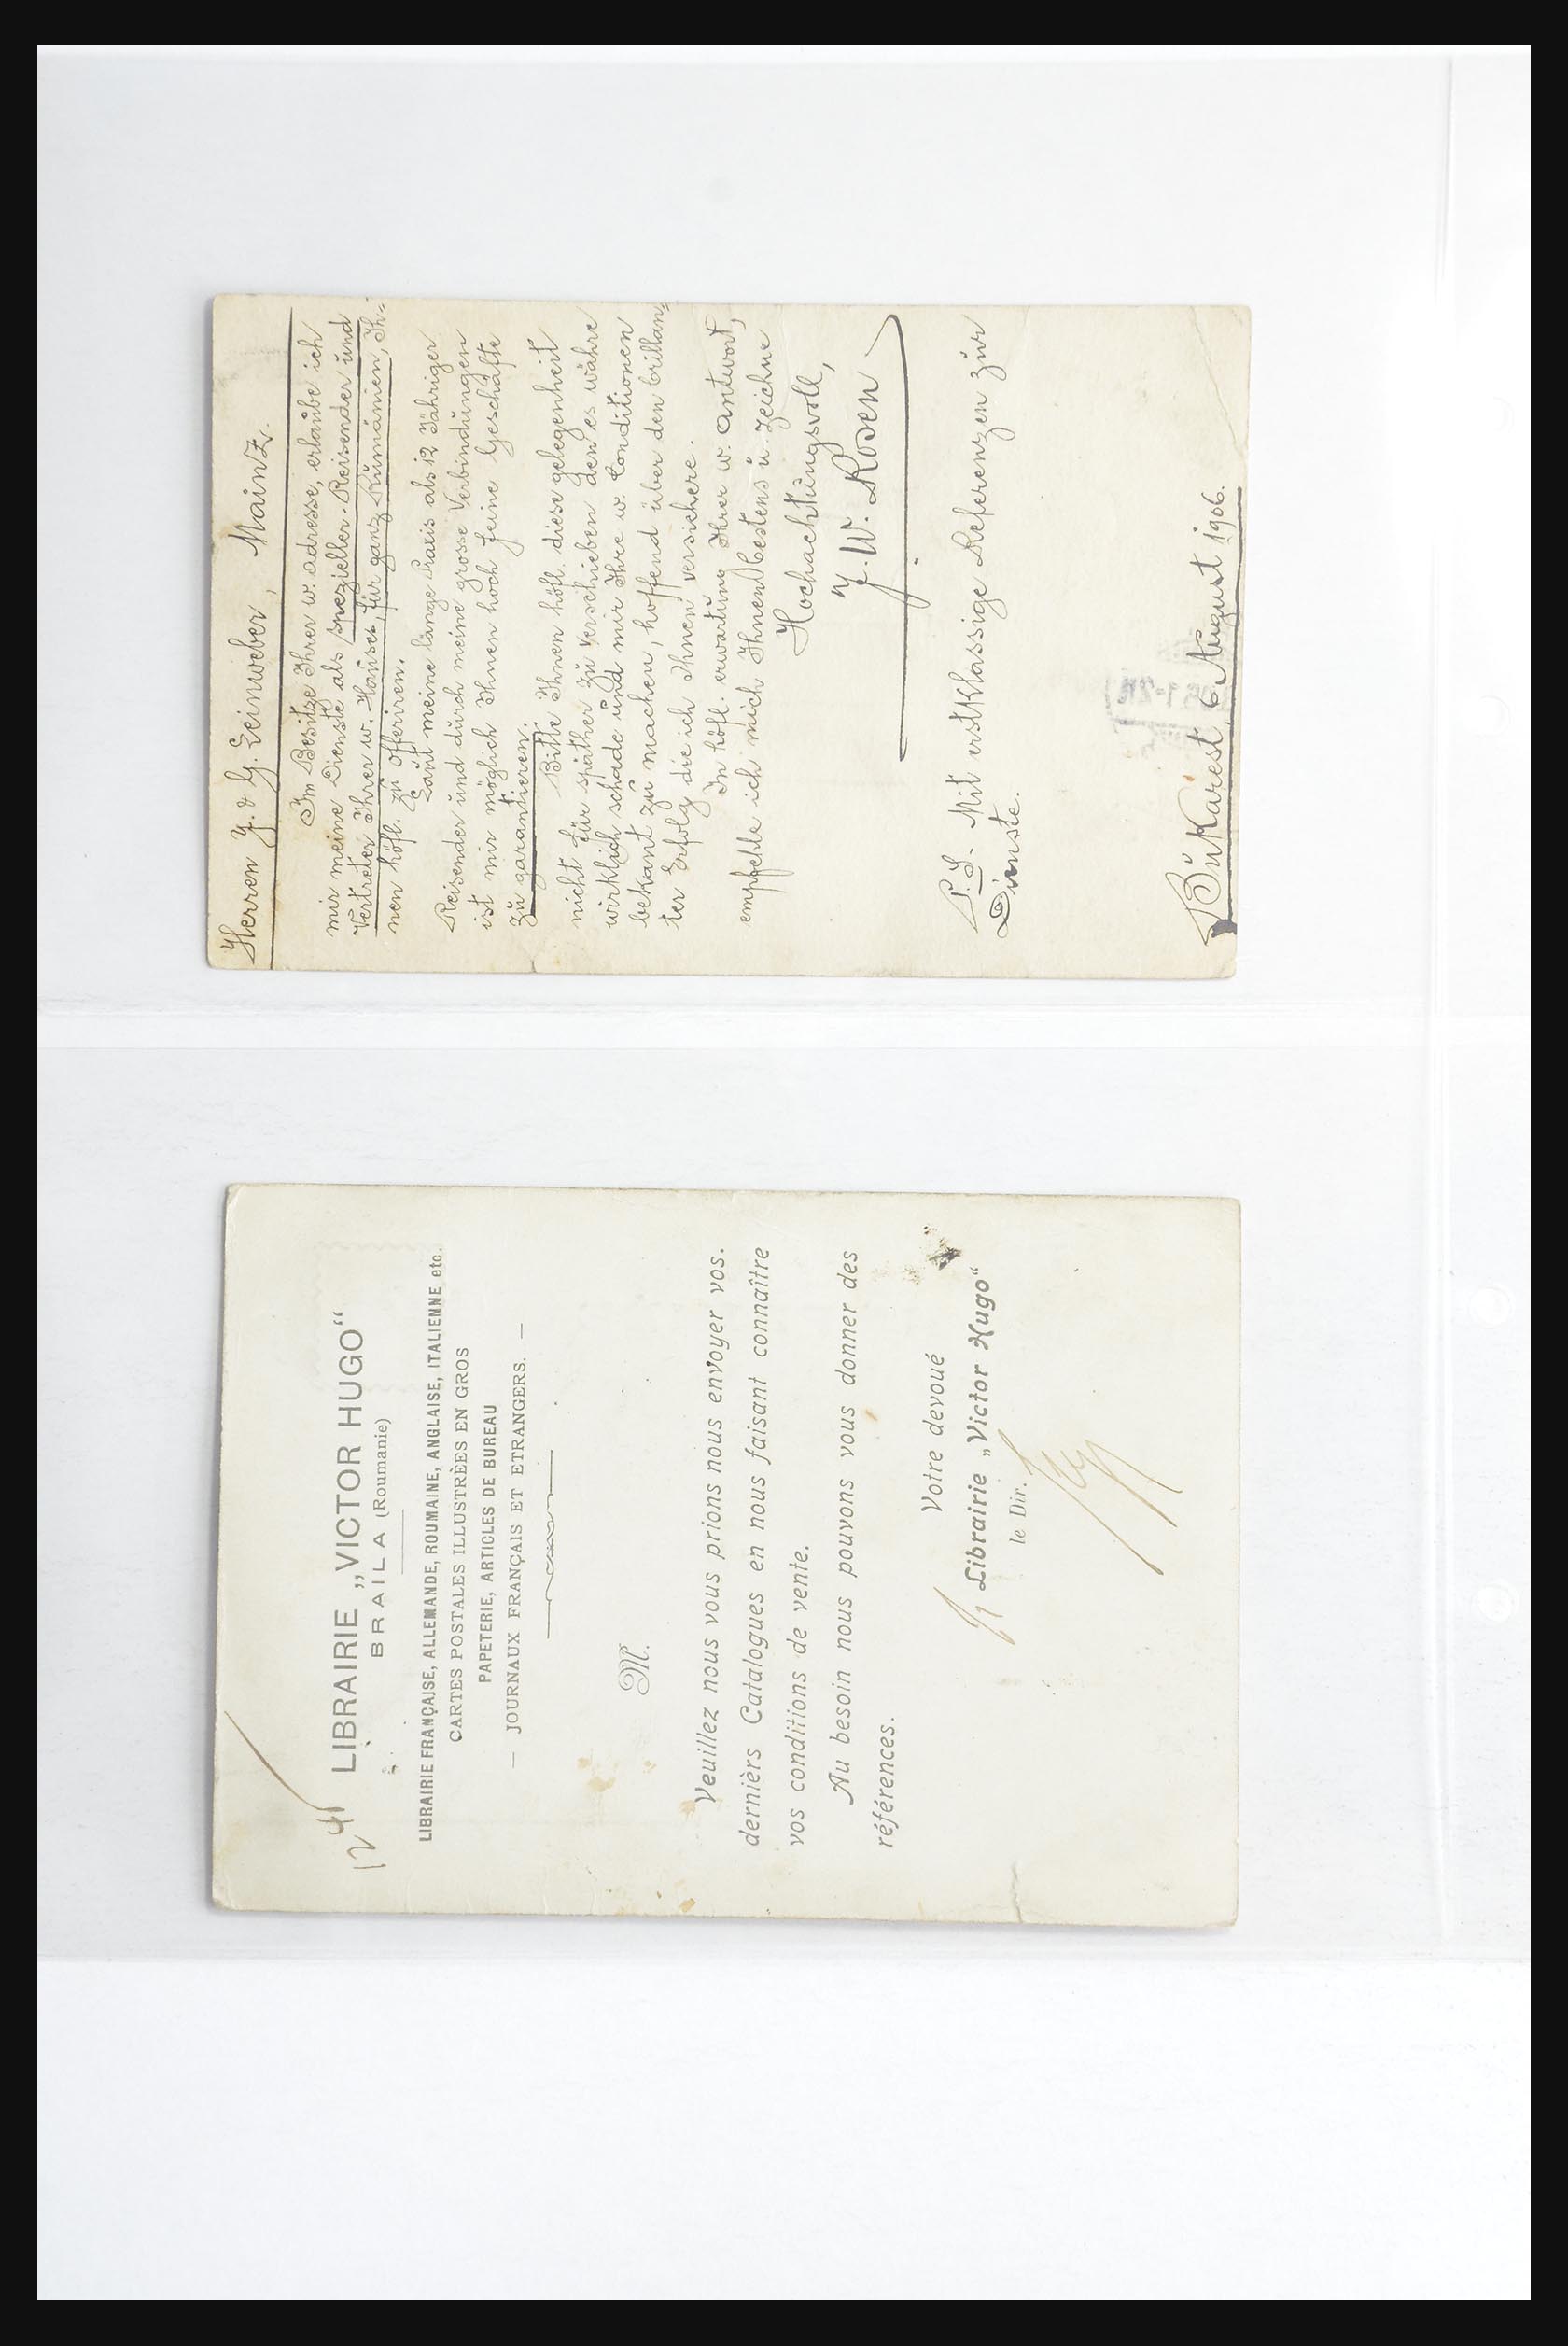 Herren J. & G. Leinweber, Mainz.
Im Besitze Ihrer w. adresse, erlaube ich
mir meine Dienste als spezieller-Reisender und
Vertreter Ihrer w. Hauses, für ganz Rümänien, Ih-
nen höfl. zu offeriren.
Laut meine lange Praxis als 12 Jähriger
Reisender und durch meine grosse Verbindungen
ist mir möglich Ihnen hoch feine Geschäfte
zu garantieren.
Bitte Ihnen höfl. diese gelegenheit
nicht für späther zu verschieben den es währe
wirklich schade und mir Ihre w. Conditionen
bekant zu machen, hoffend über den brillan-
ter Erfolg die ich Ihnen versichere.
In höfl. erwartung Ihrer w. antwort,
empfehle ich mich Ihnen bestens u. zeichne
Hochachtungsvoll,
J. W. Rosen
P.S. Mit erstklassige Referenzen zur
Dienste.
Bukarest, 6 August 1906.
124
LIBRAIRIE „VICTOR HUGO“
BRAILA (Roumanie)
LIBRAIRIE FRANÇAISE, ALLEMANDE, ROUMAINE, ANGLAISE, ITALIENNE etc.
CARTES POSTALES ILLUSTRÈES EN GROS
PAPETERIE, ARTICLES DE BUREAU
— JOURNAUX FRANÇAIS ET ETRANGERS. —
M.
Veuillez nous vous prions nous envoyer vos.
dernièrs Catalogues en nous faisant connaître
vos conditions de vente.
Au besoin nous pouvons vous donner des
références.
Votre devoué
Librairie „Victor Hugo“
le Dir.